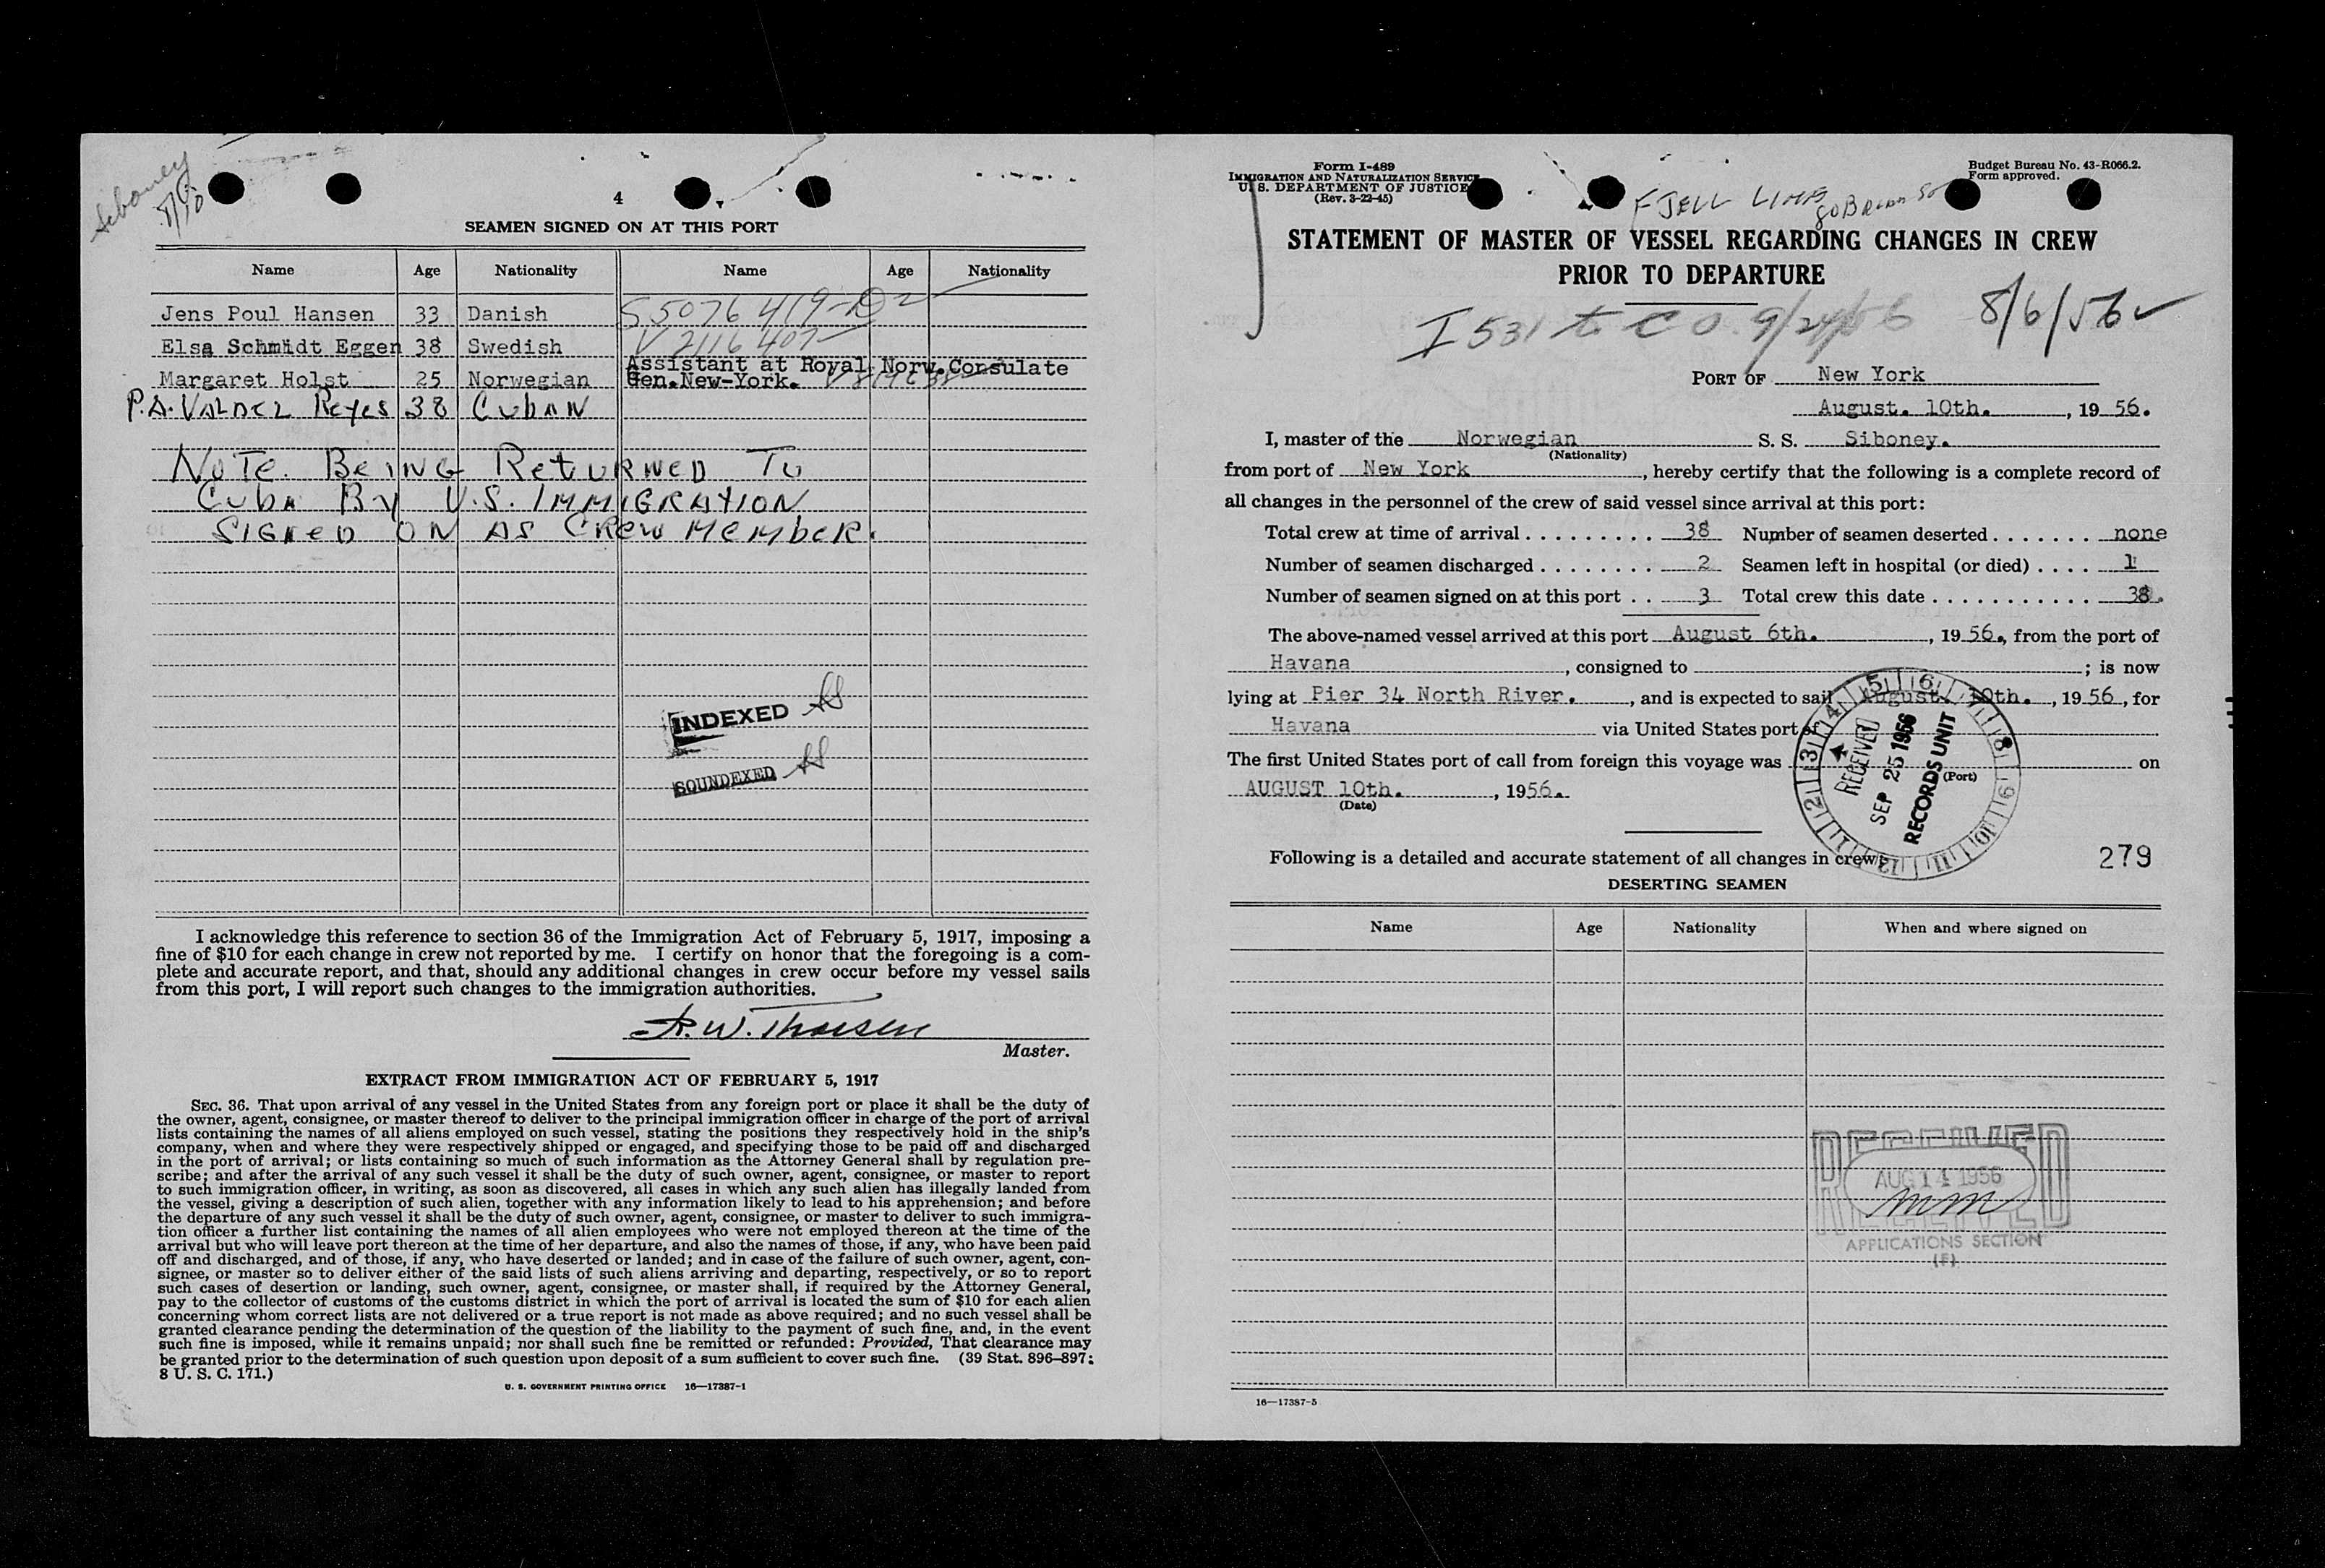 Siboney
8/10
4
SEAMEN SIGNED ON AT THIS PORT
Name Age Nationality Name Age Nationality
Jens Poul Hansen 33 Danish S5076 419-D
Elsa Schmidt Eggen 38 Swedish V 2116 407
Assistant at Royal Norw.Consulate
Margaret Holst 25 Norwegian Gen.New-York.
P.A. VALDEZ Reyes 38 CUBAN
NOTE. BeING RetURNED To
Cuba By U.S. IMMIGRATION
SIGNED ON AS CREW MEMBER.
INDEXED
SOUNDEXED
I acknowledge this reference to section 36 of the Immigration Act of February 5, 1917, imposing a
fine of $10 for each change in crew not reported by me. I certify on honor that the foregoing is a com-
plete and accurate report, and that, should any additional changes in crew occur before my vessel sails
from this port, I will report such changes to the immigration authorities.
W. Thorsen
Master.
EXTRACT FROM IMMIGRATION ACT OF FEBRUARY 5, 1917
SEC. 36. That upon arrival of any vessel in the United States from any foreign port or place it shall be the duty of
the owner, agent, consignee, or master thereof to deliver to the principal immigration officer in charge of the port of arrival
lists containing the names of all aliens employed on such vessel, stating the positions they respectively hold in the ship's
company, when and where they were respectively shipped or engaged, and specifying those to be paid off and discharged
in the port of arrival; or lists containing so much of such information as the Attorney General shall by regulation pre-
scribe; and after the arrival of any such vessel it shall be the duty of such owner, agent, consignee, or master to report
to such immigration officer, in writing, as soon as discovered, all cases in which any such alien has illegally landed from
the vessel, giving a description of such alien, together with any information likely to lead to his apprehension; and before
the departure of any such vessel it shall be the duty of such owner, agent, consignee, or master to deliver to such immigra-
tion officer a further list containing the names of all alien employees who were not employed thereon at the time of the
arrival but who will leave port thereon at the time of her departure, and also the names of those, if any, who have been paid
off and discharged, and of those, if any, who have deserted or landed; and in case of the failure of such owner, agent, con-
signee, or master so to deliver either of the said lists of such aliens arriving and departing, respectively, or so to report
such cases of desertion or landing, such owner, agent, consignee, or master shall, if required by the Attorney General,
pay to the collector of customs of the customs district in which the port of arrival is located the sum of $10 for each alien
concerning whom correct lists are not delivered or a true report is not made as above required; and no such vessel shall be
granted clearance pending the determination of the question of the liability to the payment of such fine, and, in the event
such fine is imposed, while it remains unpaid; nor shall such fine be remitted or refunded: Provided, That clearance may
be granted prior to the determination of such question upon deposit of a sum sufficient to cover such fine. (39 Stat. 896–897;
8 U. S. C. 171.)
U. S. GOVERNMENT PRINTING OFFICE 16—17387-1
Form I-489
IMMIGRATION AND NATURALIZATION SERVICE
U. S. DEPARTMENT OF JUSTICE
(Rev. 3-22-45)
Budget Bureau No. 43-R066.2.
Form approved.
FJELL LINE
80 Broad St
STATEMENT OF MASTER OF VESSEL REGARDING CHANGES IN CREW
PRIOR TO DEPARTURE
I 531 to C O. 9/24/56 8/6/56
PORT OF New York
August. 10th., 19 56.
I, master of the Norwegian S. S. Siboney.
(Nationality)
from port of New York, hereby certify that the following is a complete record of
all changes in the personnel of the crew of said vessel since arrival at this port:
Total crew at time of arrival . . . . . . . . . 38 Number of seamen deserted . . . . . . . none
Number of seamen discharged . . . . . . . . 2 Seamen left in hospital (or died) . . . . 1
Number of seamen signed on at this port . . 3 Total crew this date . . . . . . . . . . . . 38.
The above-named vessel arrived at this port August 6th., 19 56., from the port of
Havana, consigned to ; is now
lying at Pier 34 North River., and is expected to sail August. 10th., 19 56, for
Havana via United States port of
The first United States port of call from foreign this voyage was on
(Port)
AUGUST 10th., 1956.
(Date)
RECEIVED
SEP 25 1956
RECORDS UNIT
1 2 3 4 5 6 7 8 9 10 11 12
Following is a detailed and accurate statement of all changes in crew:
279
DESERTING SEAMEN
Name Age Nationality When and where signed on
RECEIVED
AUG 14 1956
mm
RECEIVED
APPLICATIONS SECTION
(F)
16—17387-5